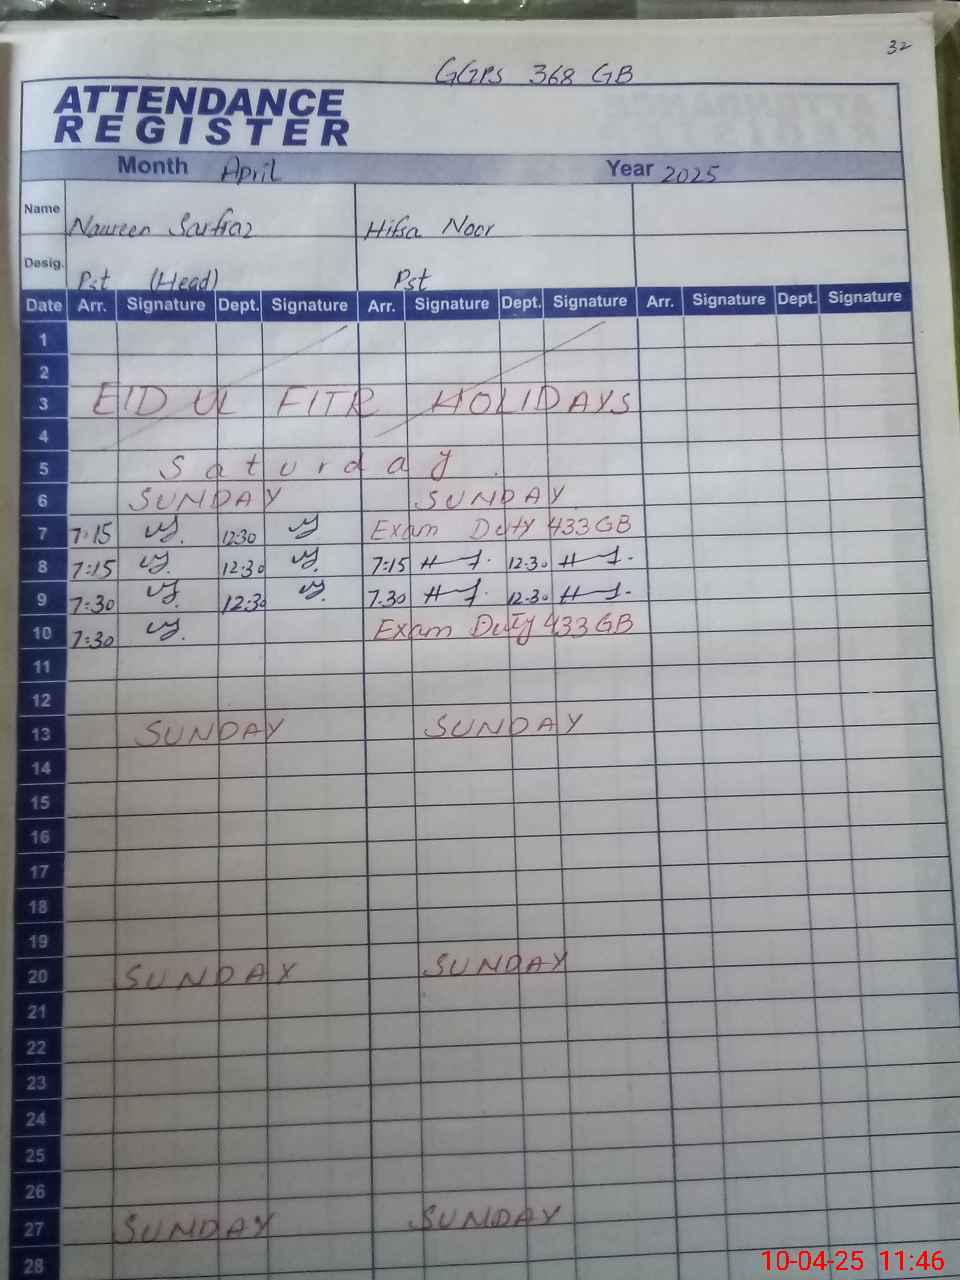 32
GGPS 368 GB
ATTENDANCE
REGISTER
Month April Year 2025
Name Naureen Sarfraz Hifsa Noor
Desig. Pst (Head) Pst
Date Arr. Signature Dept. Signature Arr. Signature Dept. Signature Arr. Signature Dept. Signature
1
2
3 EID UL FITR HOLIDAYS
4
5 Saturday
6 SUNDAY SUNDAY
7 7:15 12:30 Exam Duty 433 GB
8 7:15 12:30 7:15 12:30
9 7:30 12:30 7:30 12:30
10 7:30 Exam Duty 433 GB
11
12
13 SUNDAY SUNDAY
14
15
16
17
18
19
20 SUNDAY SUNDAY
21
22
23
24
25
26
27 SUNDAY SUNDAY
28
10-04-25 11:46